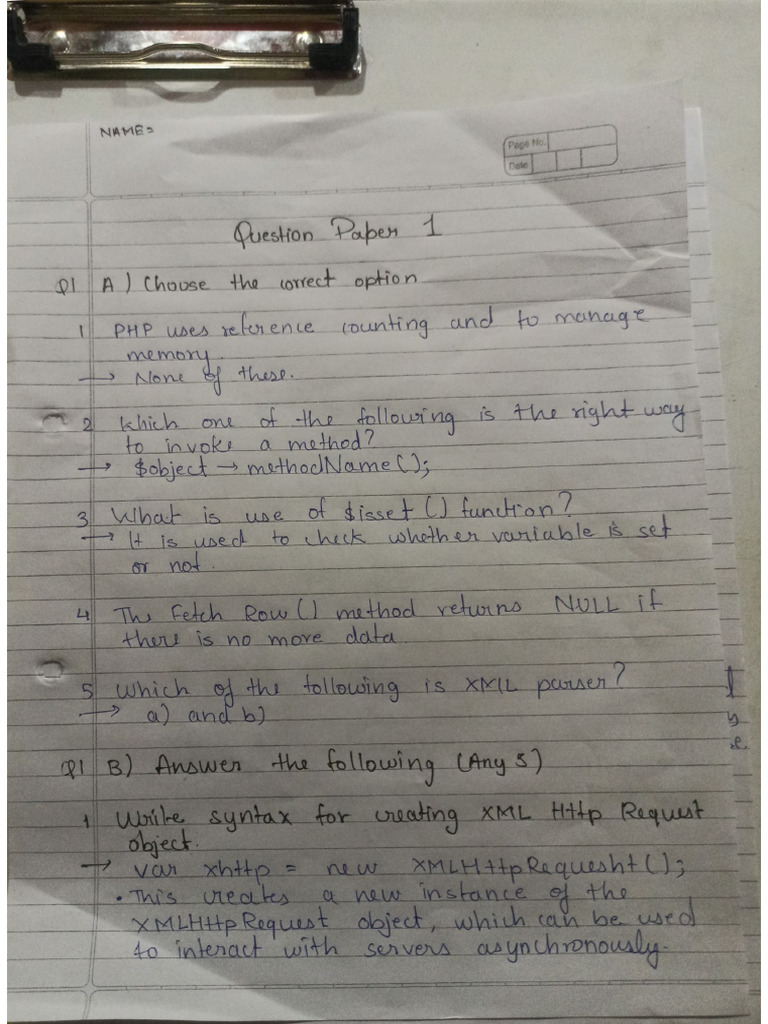 NAME:
Page No.
Date
Question Paper 1
Q1 A) Choose the correct option
1 PHP uses reference counting and to manage
memory.
→ None of these.
2 Which one of the following is the right way
to invoke a method?
→ $object → methodName();
3 What is use of $isset() function?
→ It is used to check whether variable is set
or not.
4 The Fetch Row() method returns NULL if
there is no more data
5 Which of the following is XML parser?
→ a) and b)
Q1 B) Answer the following (Any 5)
1 Write syntax for creating XML Http Request
object.
→ var xhttp = new XMLHttpRequesht();
• This creates a new instance of the
XMLHttpRequest object, which can be used
to interact with servers asynchronously.